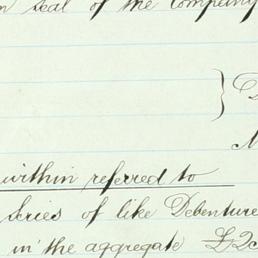 seal of the Company
within referred to
series of like Debenture
in the aggregate £25